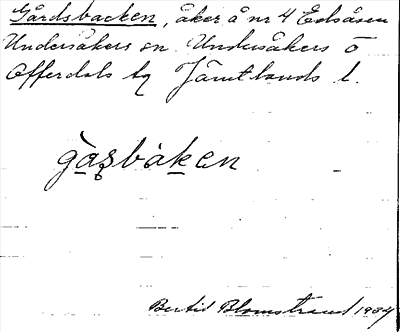 Gårdsbacken, åker å nr 4 Edsåsen
Undersåkers sn Undersåkers o
Offerdals tg Jämtlands l.
gasbaken
Bertil Blomstrand 1934